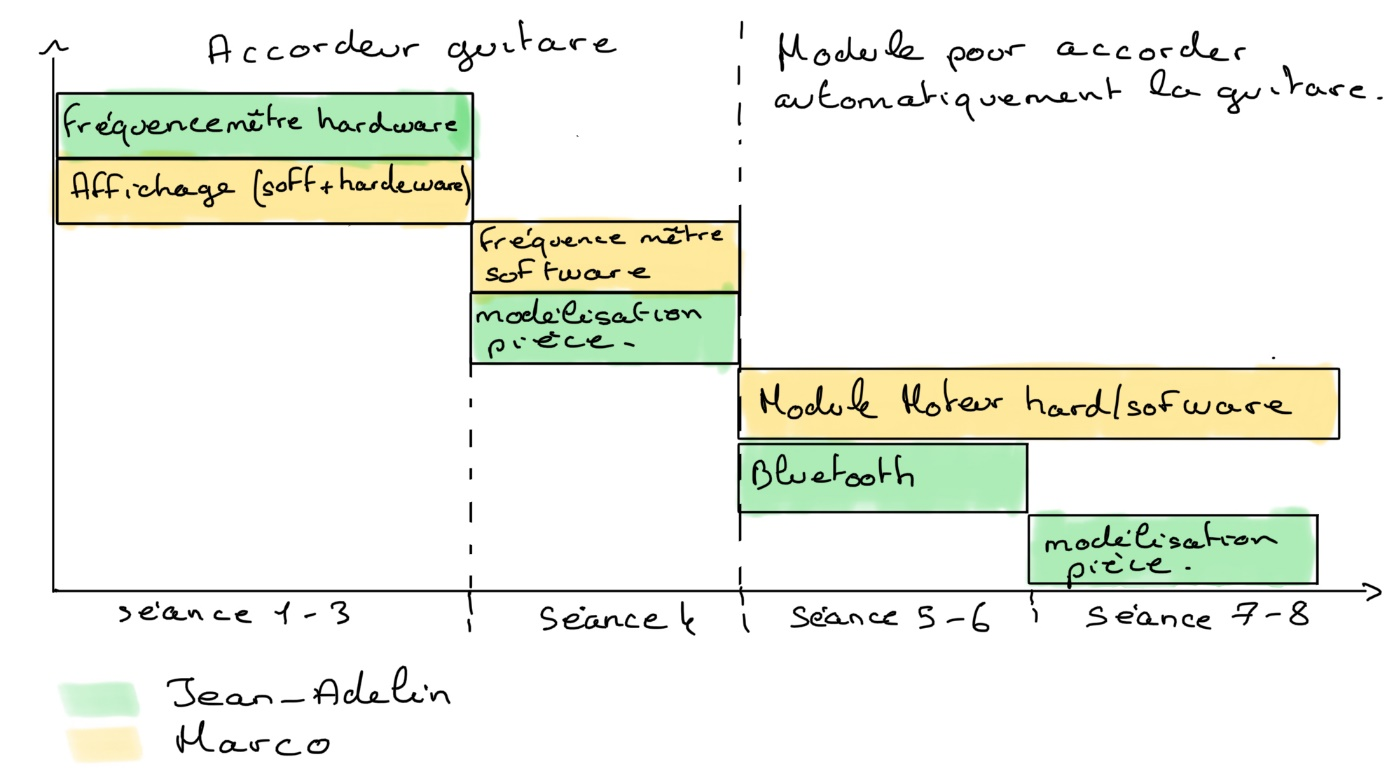 Accordeur guitare
Module pour accorder
automatiquement la guitare.
Fréquencemêtre hardware
Affichage (soft+hardeware)
Fréquence mêtre
software
modélisation
pièce.
Module Moteur hard/sofware
Bluetooth
modélisation
pièce.
séance 1-3
Séance 4
Séance 5-6
Séance 7-8
Jean-Adelin
Marco